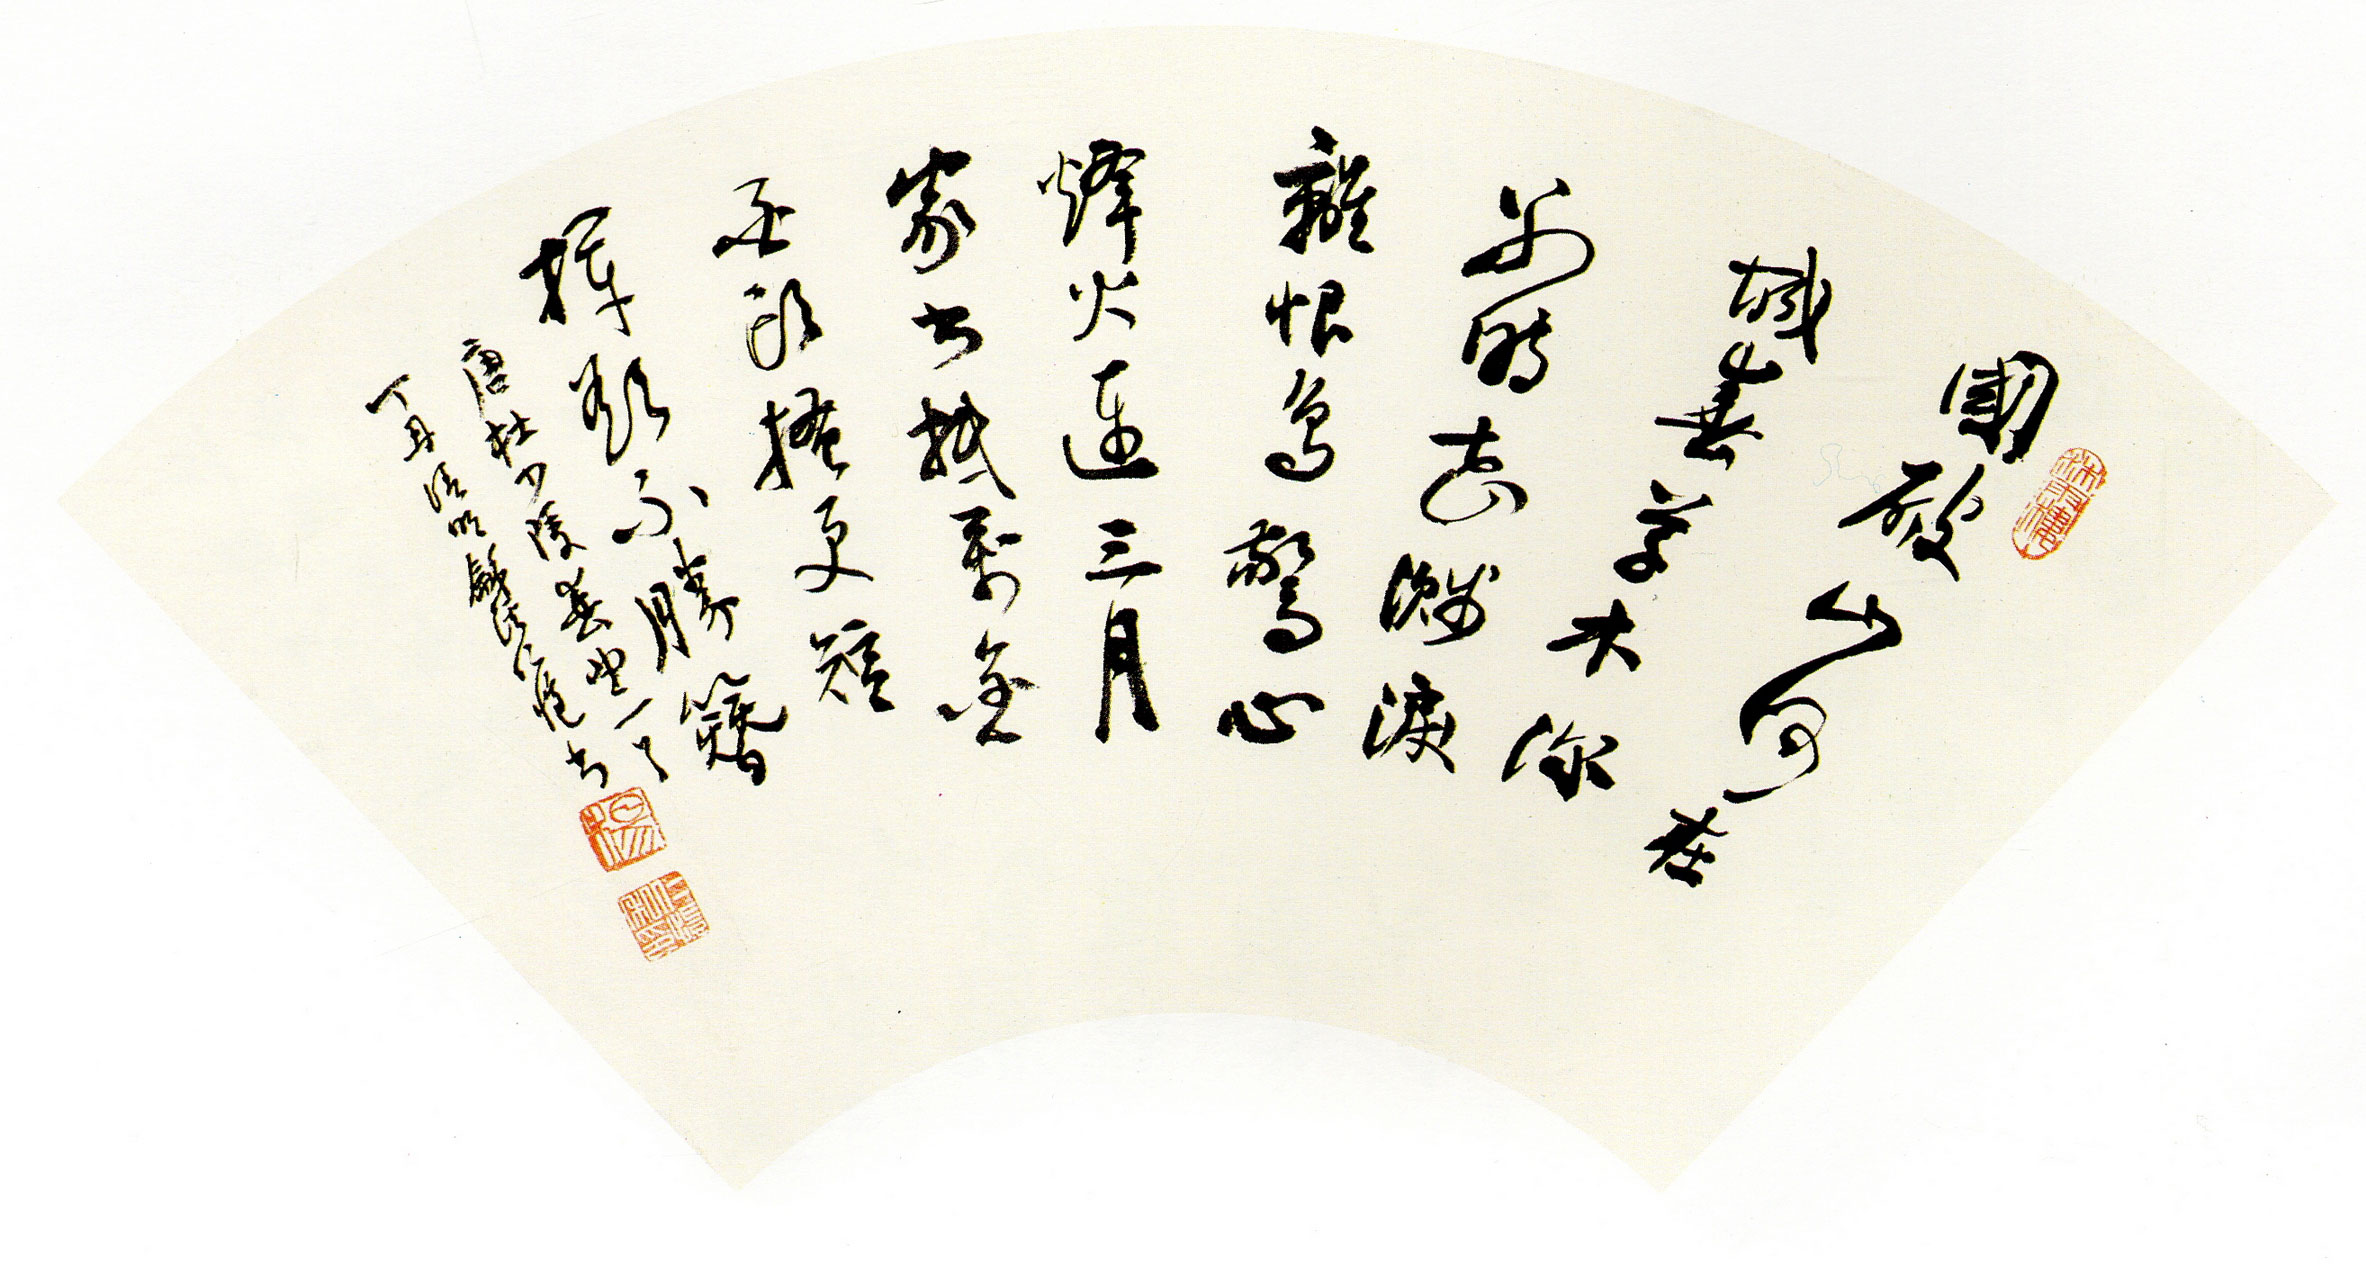 國破山河在
城春草木深
時濺淚
離恨鳥驚心
烽火連三月
家書抵萬金
搔更短
揮欲不勝簪
唐杜少陵春望一首
丁丑清明龢溪仁愷書
沐雨樓